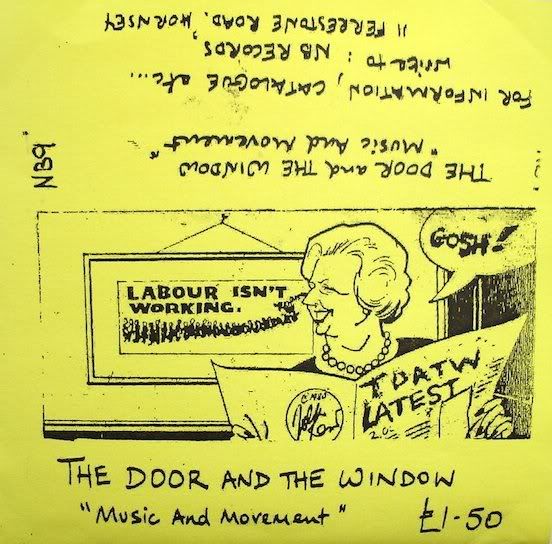 FOR INFORMATION, CATALOGUE etc...
WRITE to : NB RECORDS
11 FERRESTONE ROAD, HORNSEY
THE DOOR AND THE WINDOW
"MUSIC AND MOVEMENT"
NB9
GOSH!
LABOUR ISN'T
WORKING.
TDATW
LATEST
© 1980
THE DOOR AND THE WINDOW
"MUSIC AND MOVEMENT"
£1-50